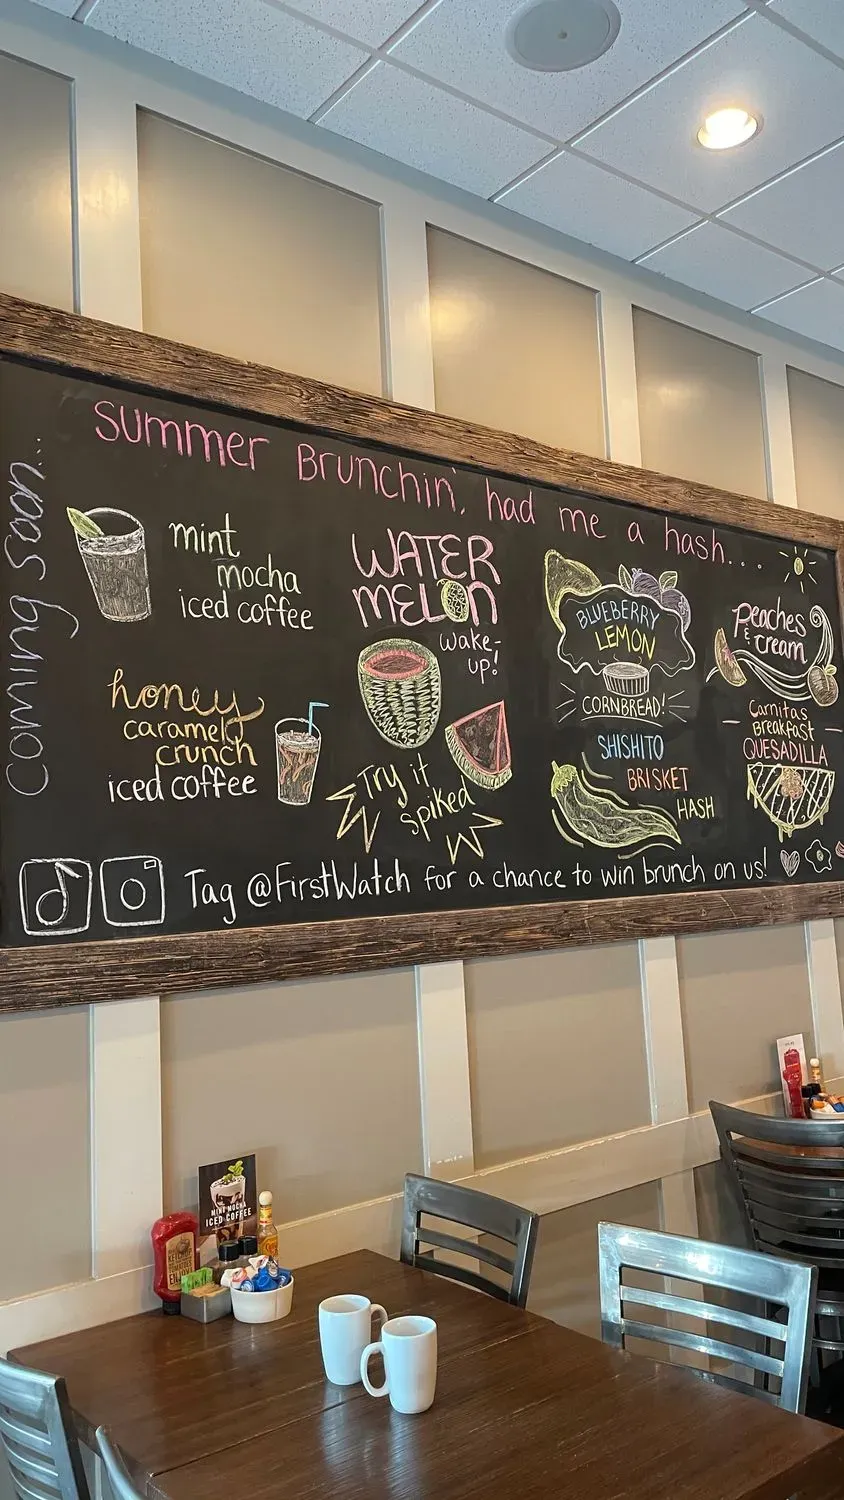 Summer Brunchin', had me a hash...
coming soon...
mint
mocha
iced coffee
honey
caramel
crunch
iced coffee
WATER
MELON
wake-
up!
Try it
spiked
BLUEBERRY
LEMON
CORNBREAD!
SHISHITO
BRISKET
HASH
Peaches
& cream
Carnitas
Breakfast
QUESADILLA
Tag @FirstWatch for a chance to win brunch on us!
MINT MOCHA
ICED COFFEE
KETCHUP
ENJOY!